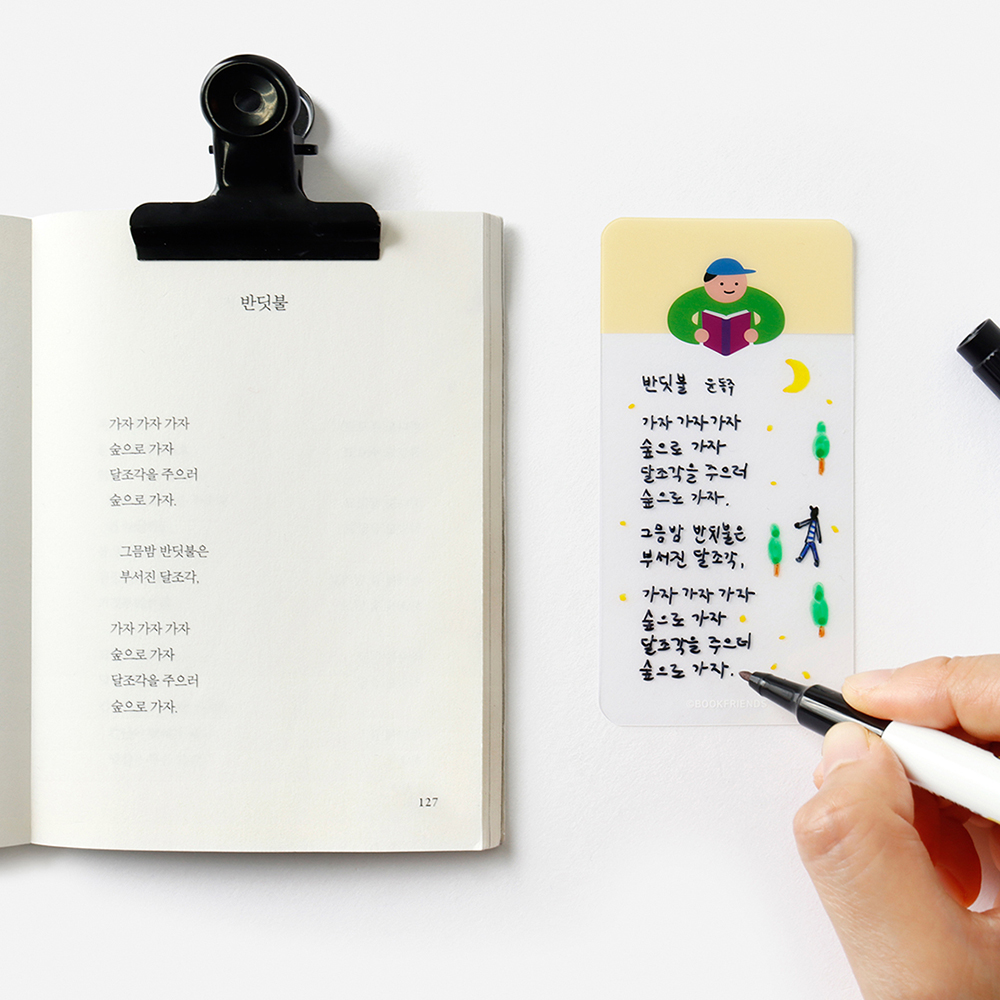 반딧불
가자 가자 가자
숲으로 가자
달조각을 주으러
숲으로 가자.
그믐밤 반딧불은
부서진 달조각,
가자 가자 가자
숲으로 가자
달조각을 주으러
숲으로 가자.
127
반딧불 윤동주
가자 가자 가자
숲으로 가자
달조각을 주으러
숲으로 가자.
그믐밤 반딧불은
부서진 달조각,
가자 가자 가자
숲으로 가자
달조각을 주으러
숲으로 가자.
©BOOKFRIENDS